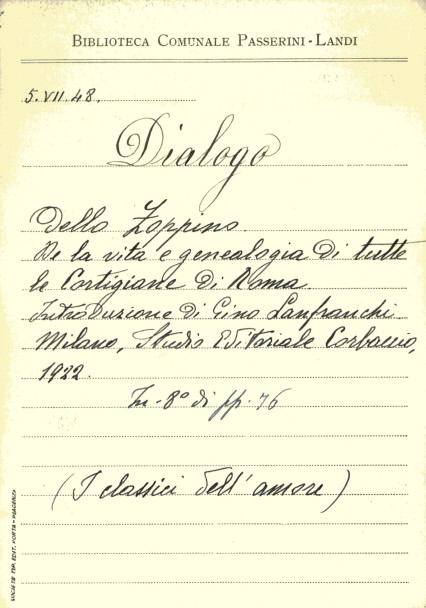 BIBLIOTECA COMUNALE PASSERINI-LANDI
5.VII.48.
Dialogo
dello Zoppino.
De la vita e genealogia di tutte
le Cortigiane di Roma.
Introduzione di Gino Lanfranchi.
Milano, Studio Editoriale Corbaccio,
1922.
In-8° di pp. 76
(I classici dell'amore)